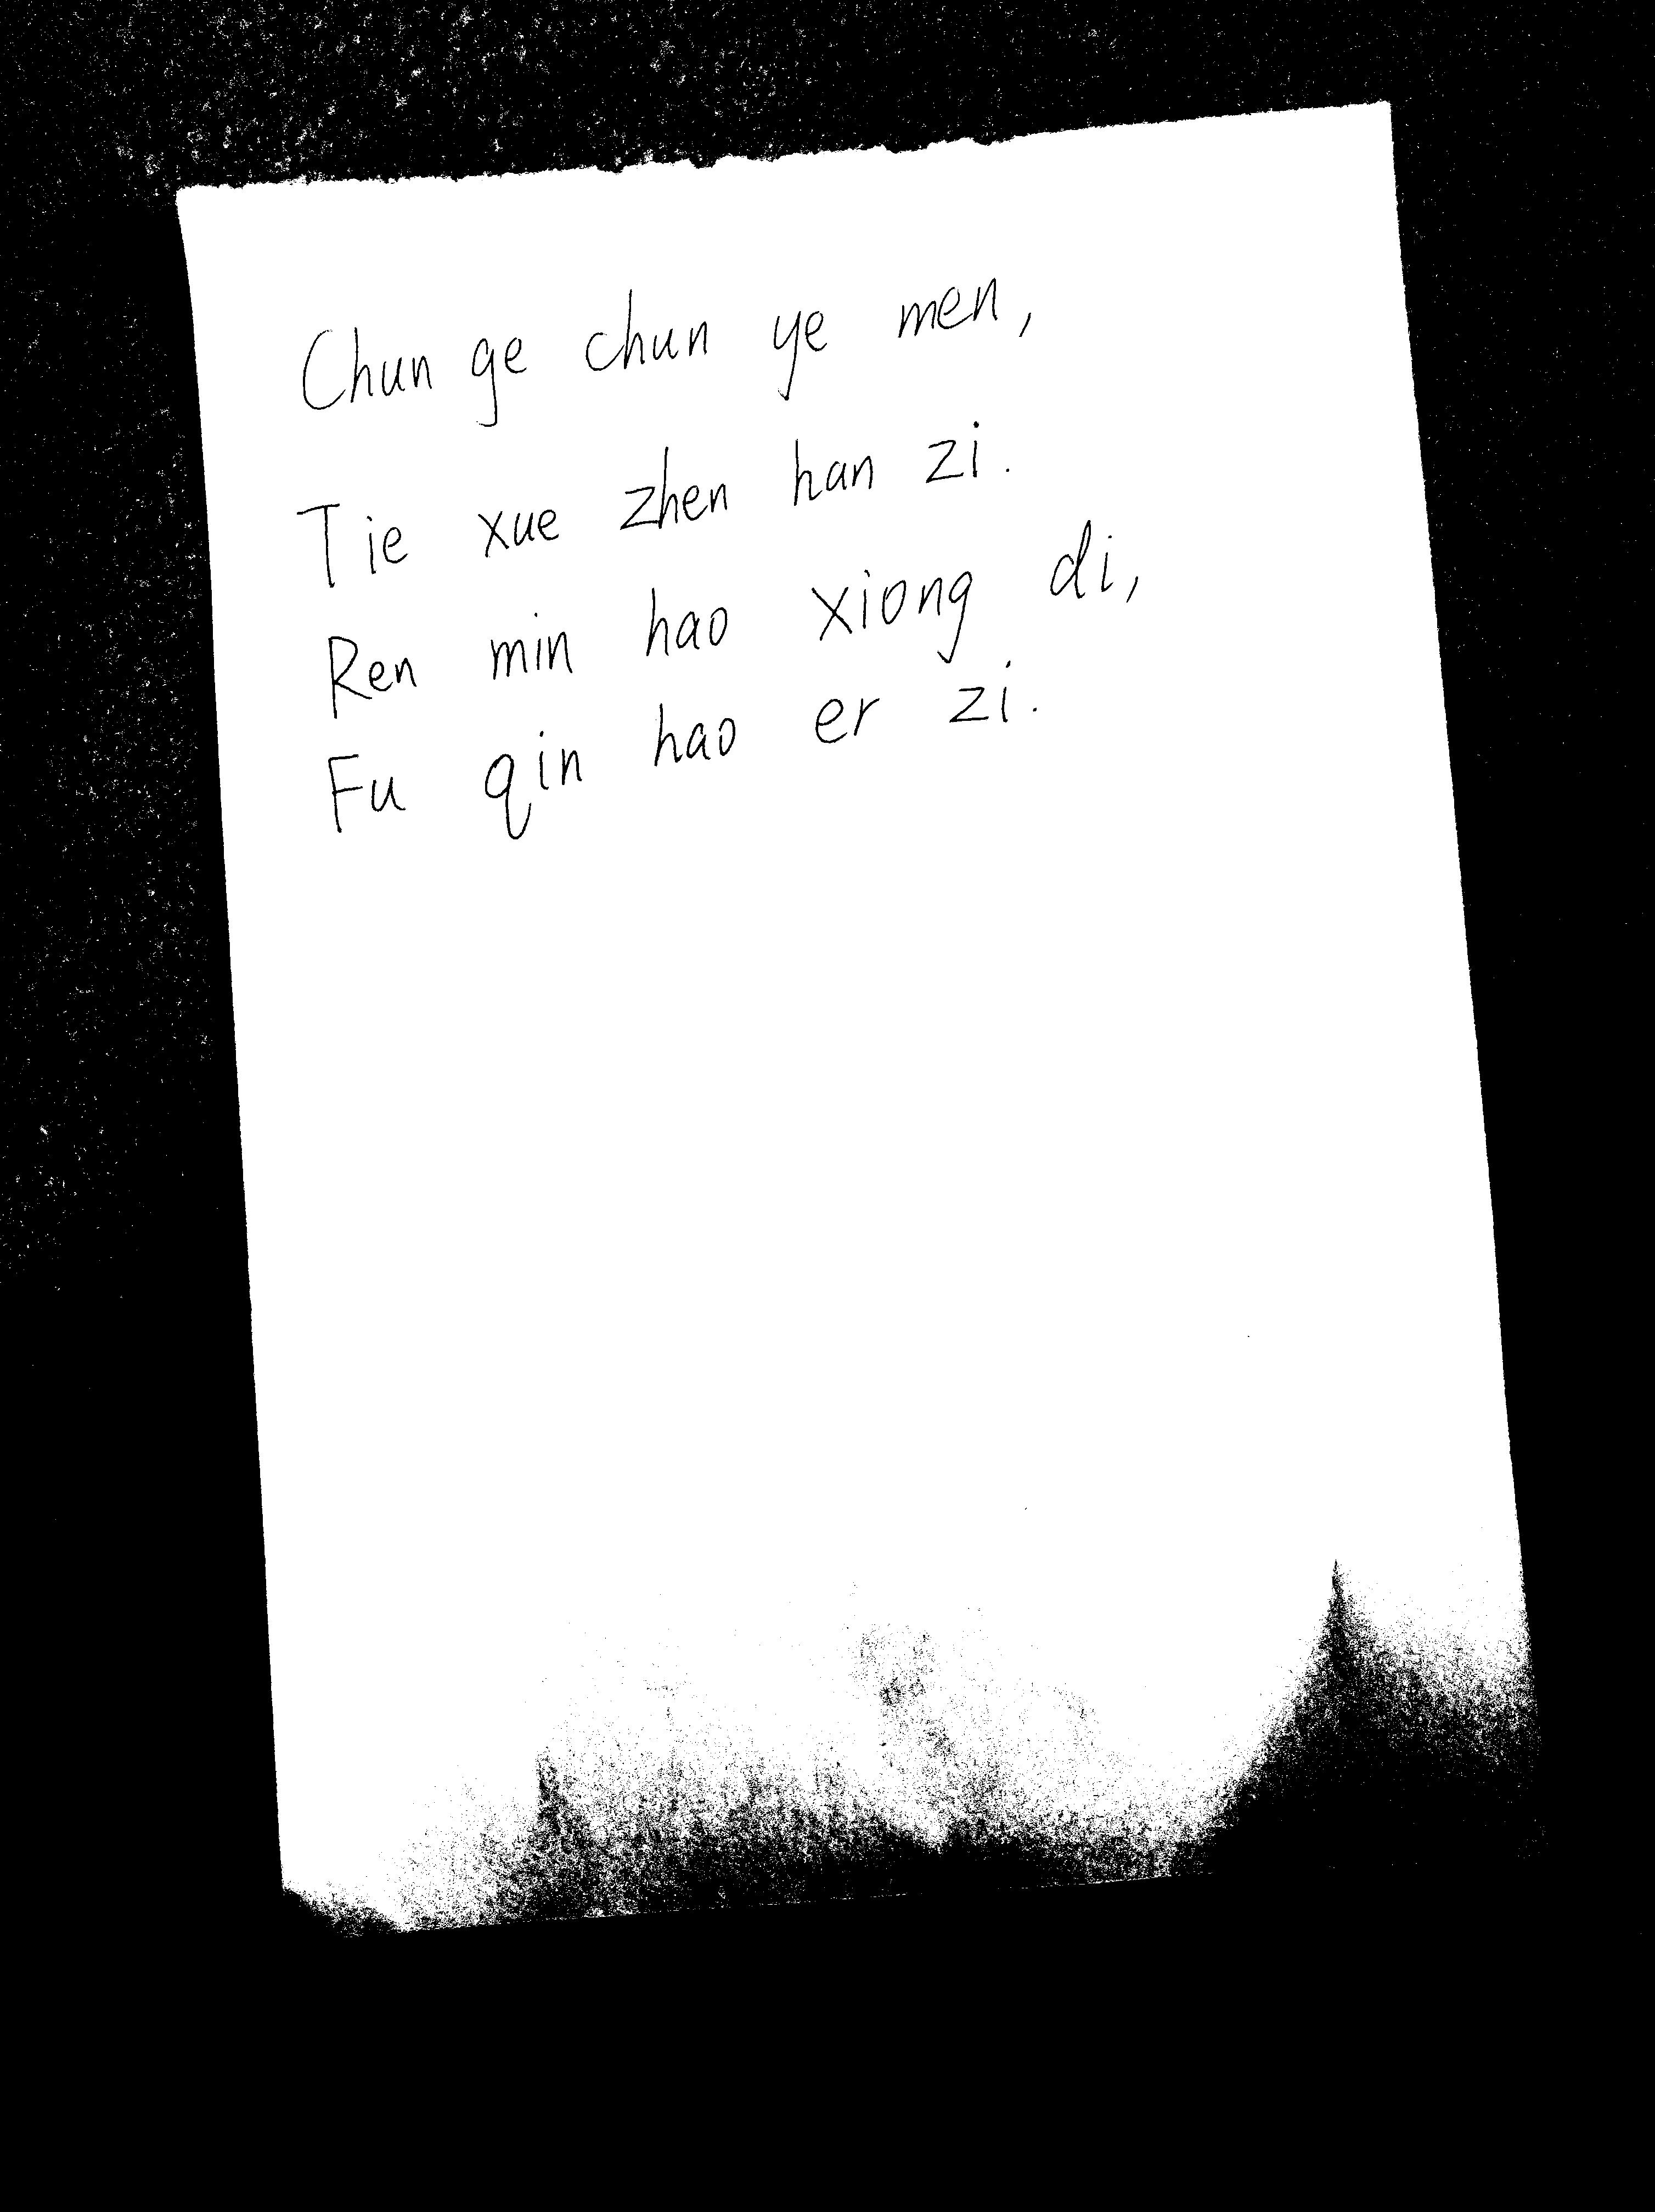 Chun ge chun ye men,
Tie xue zhen han zi.
Ren min hao xiong di,
Fu qin hao er zi.